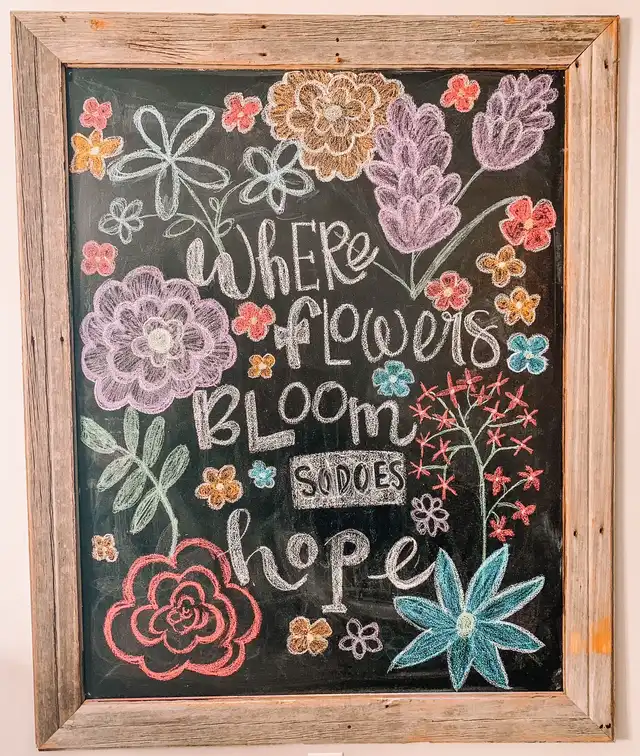 WhERe
flowers
BLOOm
SO DOES
hope